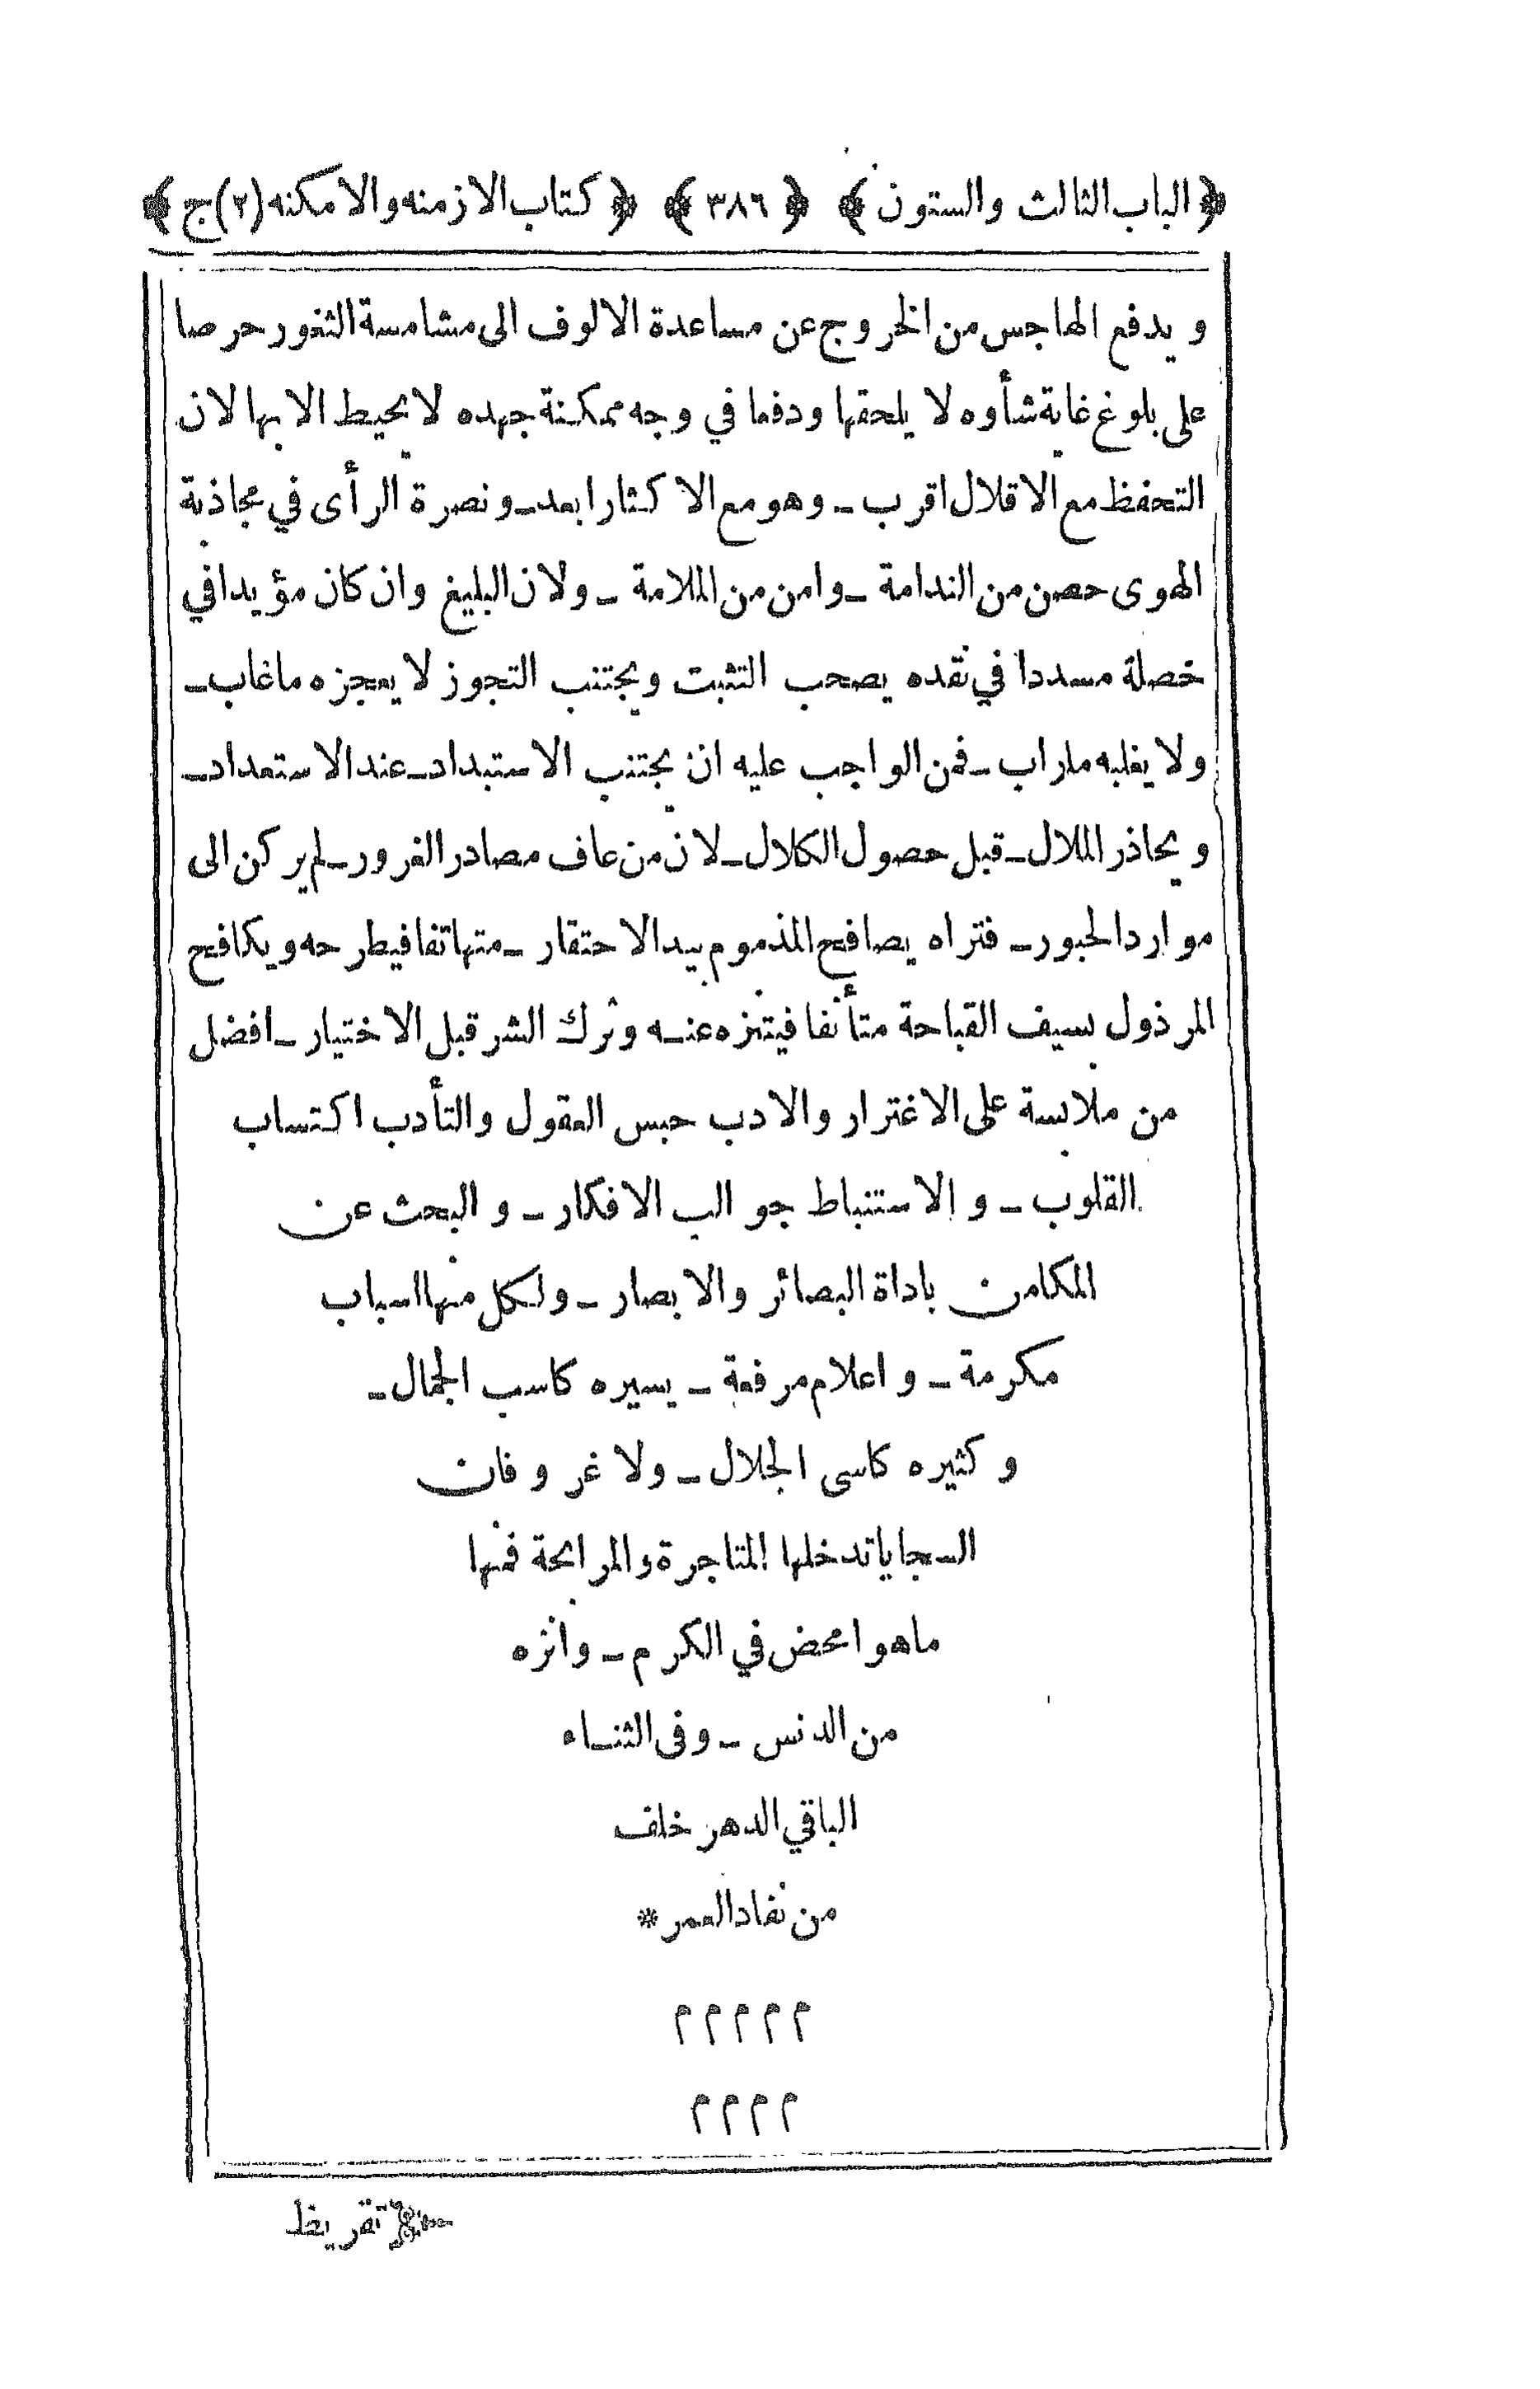 ﴿الباب الثالث والستون﴾ ﴿٣٨٦﴾ ﴿كتاب الازمنه والامكنه (٢) ج﴾
و يدفع الهاجس من الخروج عن مساعدة الالوف الى مشامسة النفور حرصا
على بلوغ غاية شأوه لا يلحقها ودفعا في وجه ممكنة جهده لا يحيط الابها لان
التحفظ مع الاقلال اقرب ــ وهو مع الا كثار ابعد ــ ونصرة الرأى في مجاذبة
الهوى حصن من الندامة ــ وامن من الملامة ــ ولان البليغ وان كان مؤيدا في
خصلة مسددا في نقده يصحب التثبت ويجتنب التجوز لا يعجزه ما غاب ــ
ولا يغلبه ماراب ــ فمن الواجب عليه ان يجتنب الاستبداد ــ عند الاستعداد ــ
و يحاذر الملال ــ قبل حصول الكلال ــ لان من عاف مصادر الغرور ــ لم يركن الى
موارد الحبور ــ فتراه يصافح المذموم بيد الاحتقار ــ متهاتفا فيطرحه ويكافح
المرذول بسيف القباحة متأنفا فيتنزه عنه وترك الشر قبل الاختيار ــ افضل
من ملابسة على الاغترار والادب حبس العقول والتأدب اكتساب
القلوب ــ و الاستنباط جوالب الافكار ــ و البحث عن
المكامن باداة البصائر والابصار ــ ولكل منها اسباب
مكرمة ــ و اعلام مرفعة ــ يسيره كاسب الجمال ــ
و كثيره كاسى الجلال ــ ولا غرو فان
السجايا تدخلها المتاجرة والمرابحة فمنها
ماهو امحض في الكرم ــ وانزه
من الدنس ــ وفى الثناء
الباقي الدهر خلف
من نفاد العمر *
م م م م م
م م م م
تقريظ